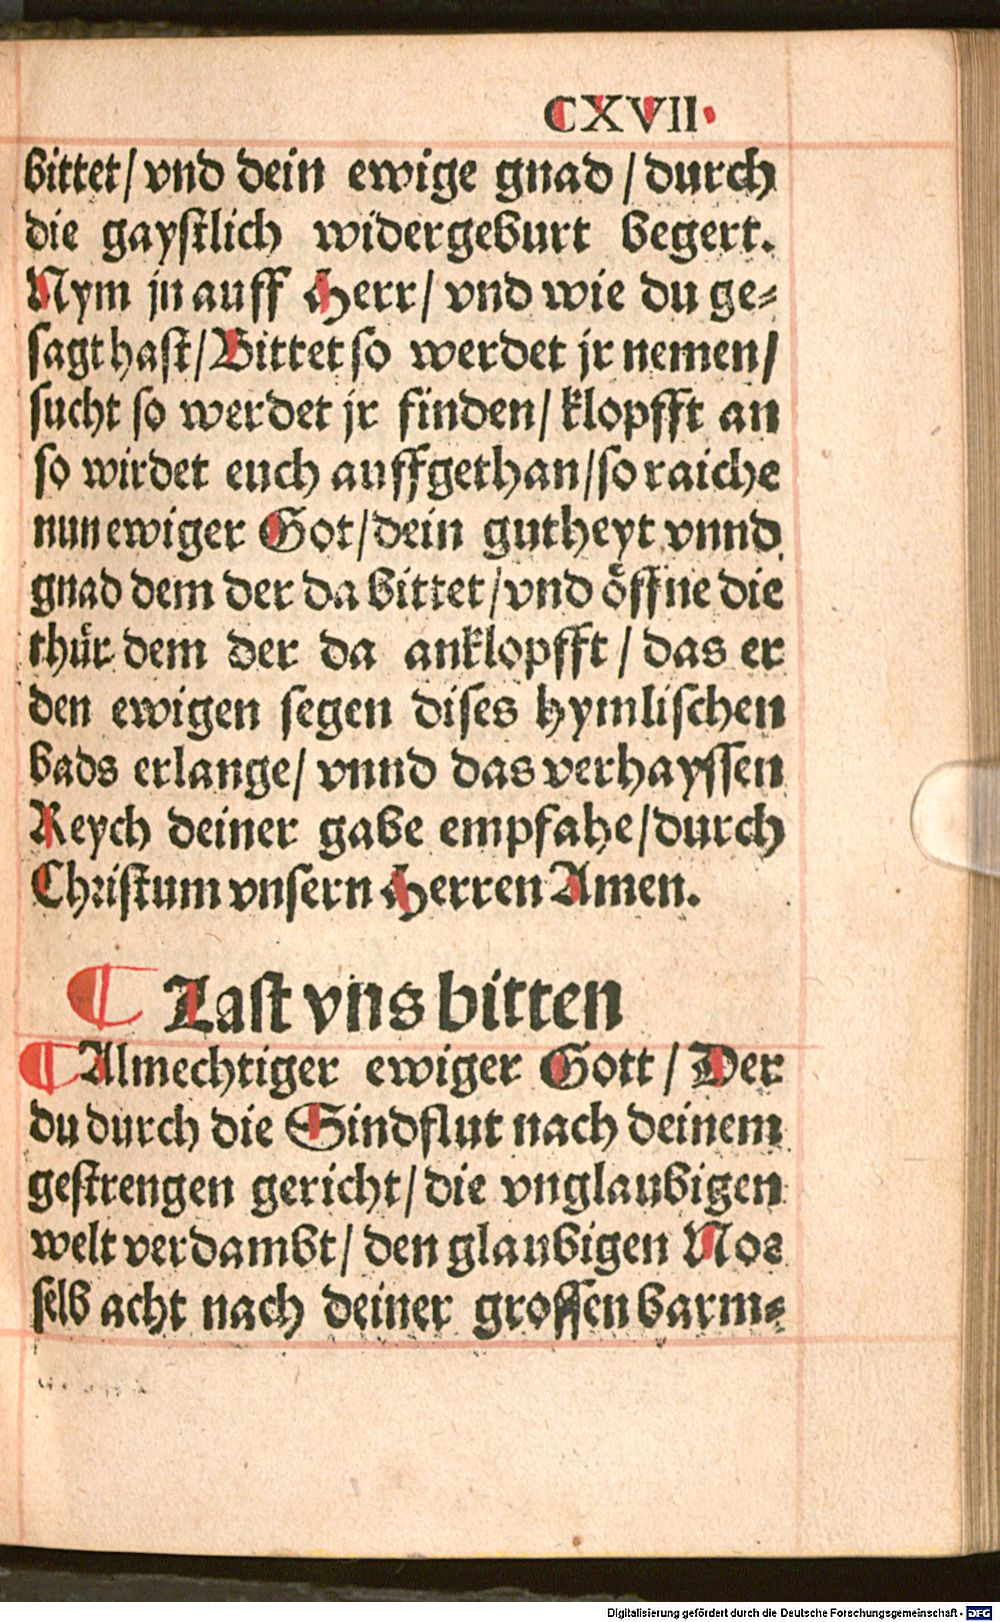 CXVII.
bittet/ vnd dein ewige gnad / durch
die gaystlich widergeburt begert.
Nym jn auff Herr/ vnd wie du ge-
sagt hast/ Bittet so werdet jr nemen/
sucht so werdet jr finden/ klopfft an
so wirdet euch auffgethan/ so raiche
nun ewiger Got/ dein gutheyt vnnd
gnad dem der da bittet/ vnd öffne die
thür dem der da anklopfft / das er
den ewigen segen dises hymlischen
bads erlange/ vnnd das verhayssen
Reych deiner gabe empfahe/ durch
Christum vnsern Herren Amen.
Last vns bitten
Almechtiger ewiger Gott / Der
du durch die Sindflut nach deinem
gestrengen gericht/ die vnglaubigen
welt verdambt/ den glaubigen Noe
selb acht nach deiner grossen barm-
Digitalisierung gefördert durch die Deutsche Forschungsgemeinschaft - DFG